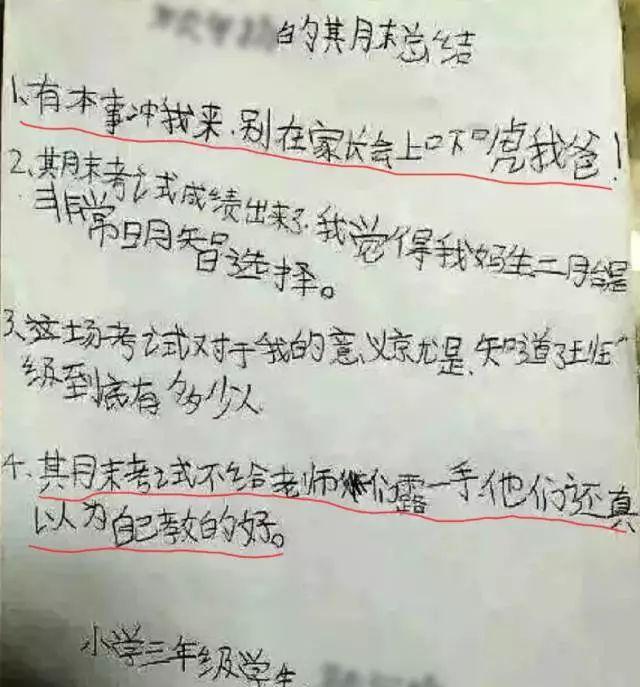 的其月末总结
1、有本事冲我来，别在家长会上吓唬我爸！
2、其月末考试成绩出来了，我觉得我妈生二月台是
非常明智选择。
3、这场考试对于我的意义京尤是，知道了王圧
级到底有多少人
4、其月末考试不给老师们露一手，他们还真
以为自己教的好。
小学三年级学生